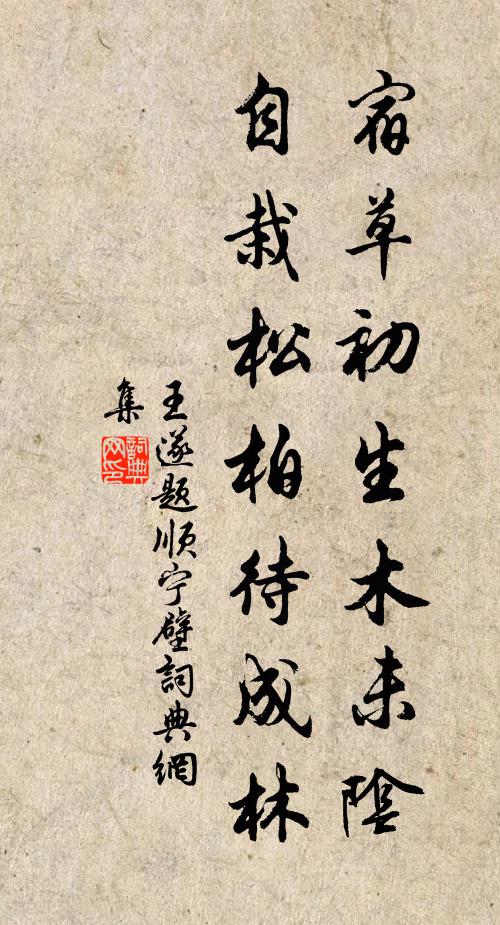 宿草初生木未陰
自栽松柏待成林
王遂题顺宁壁詞典網
集
詞典
网印